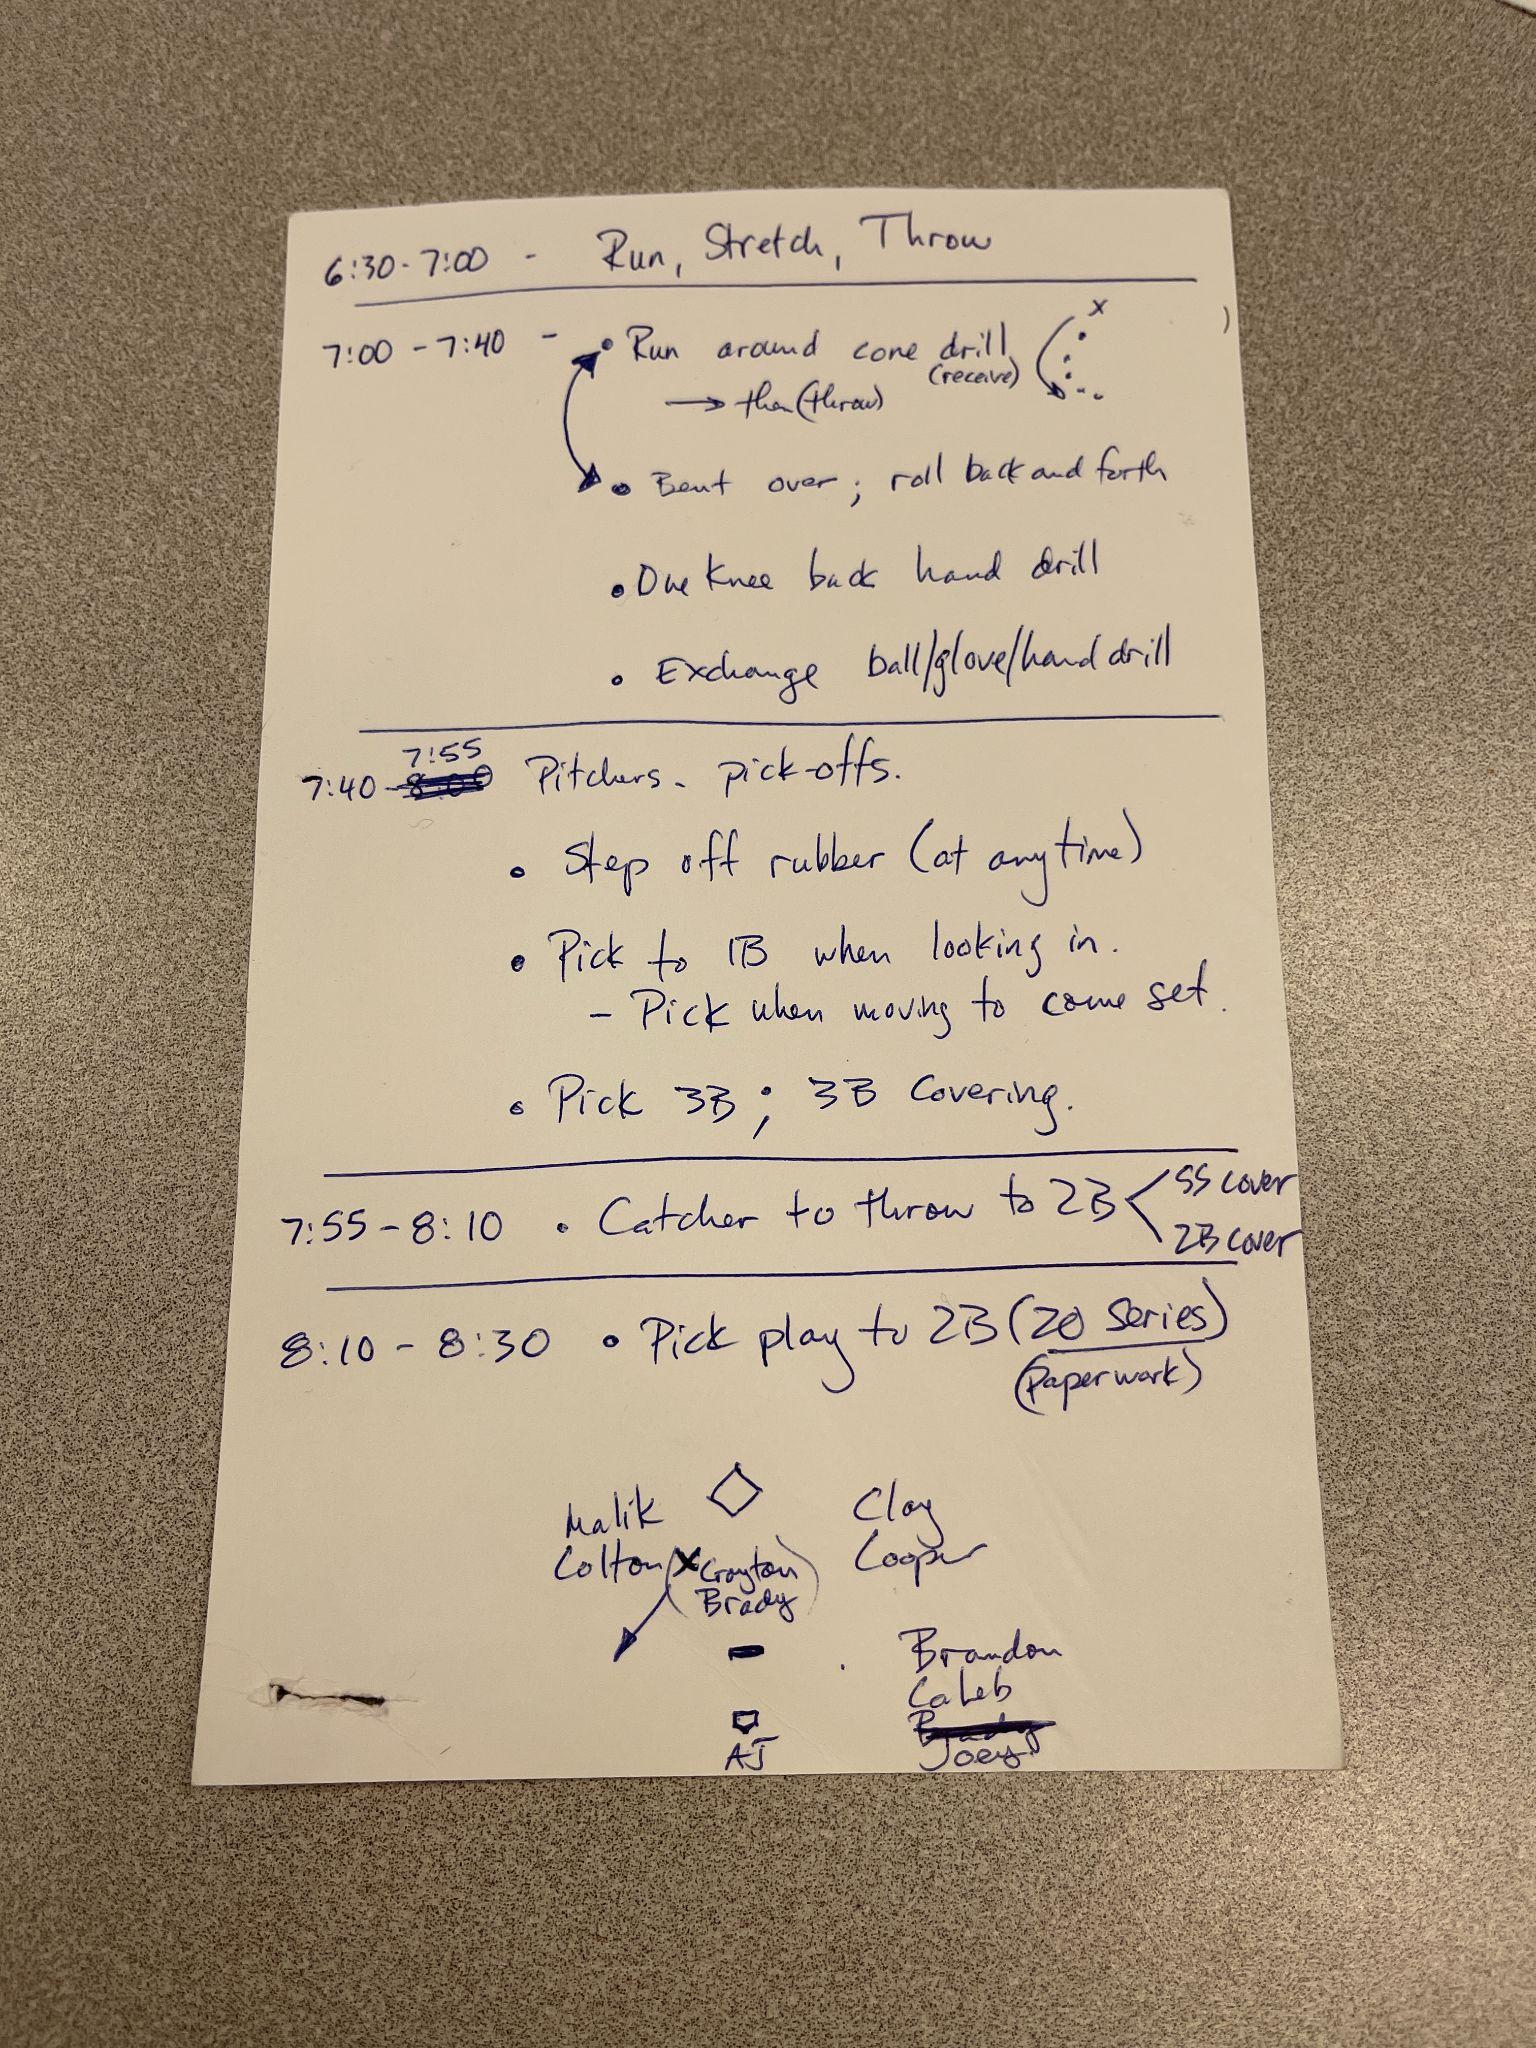 6:30-7:00 - Run, Stretch, Throw
7:00 - 7:40 - • Run around cone drill x
(receive)
→ then (throw)
• Bent over; roll back and forth
• One Knee back hand drill
• Exchange ball/glove/hand drill
7:55
7:40 - 8:00 Pitchers - pick-offs.
• Step off rubber (at anytime)
• Pick to 1B when looking in.
- Pick when moving to come set.
• Pick 3B; 3B Covering.
7:55 - 8:10 • Catcher to throw to 2B < SS cover
2B cover
8:10 - 8:30 • Pick play to 2B (20 Series)
(paperwork)
Malik Clay
Colton (X Crayton) Cooper
Brady
Brandon
Caleb
Brady
Joey
AJ